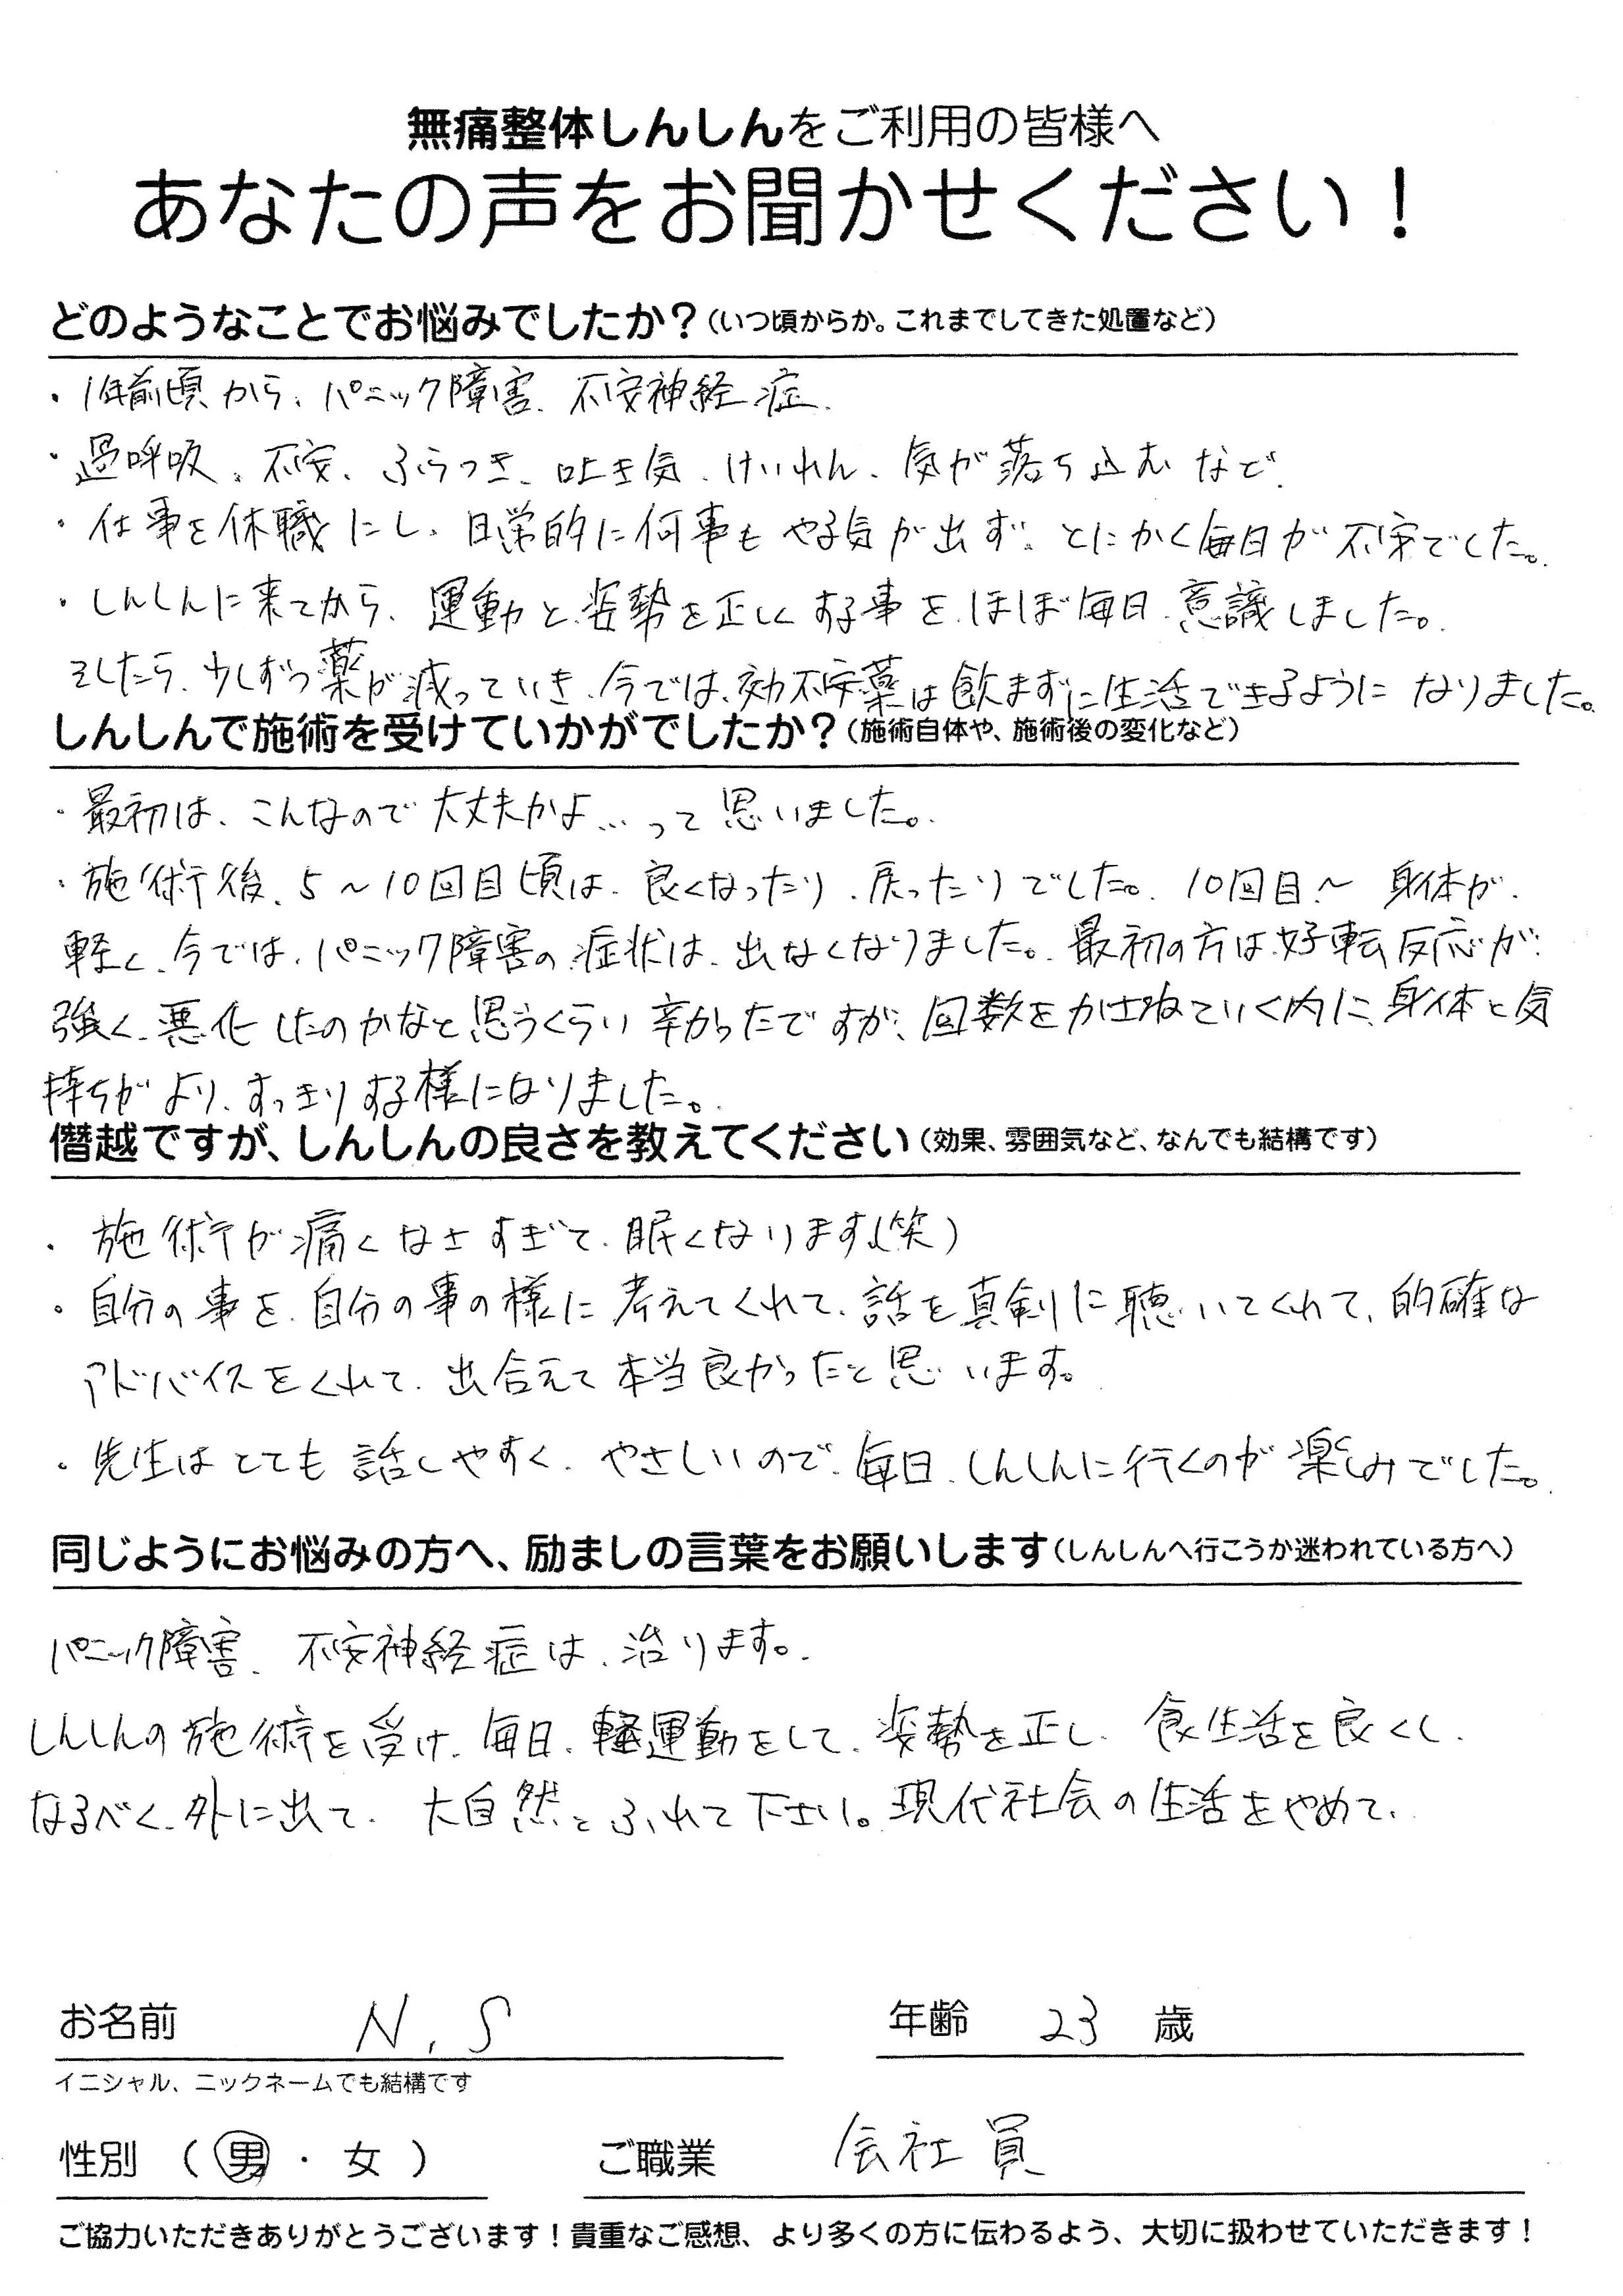 無痛整体しんしんをご利用の皆様へ
あなたの声をお聞かせください！
どのようなことでお悩みでしたか？（いつ頃からか。これまでしてきた処置など）
・1年前頃から、パニック障害、不安神経症、
・過呼吸、不安、ふらつき、吐き気、けいれん、気が落ち込むなど、
・仕事を休職にし、日常的に何事もやる気が出ず、とにかく毎日が不安でした。
・しんしんに来てから、運動と、姿勢を正しくする事を、ほぼ毎日、意識しました。
そしたら、少しずつ薬が減っていき、今では、効不安薬は飲まずに生活できるようになりました。
しんしんで施術を受けていかがでしたか？（施術自体や、施術後の変化など）
・最初は、こんなので大丈夫かよ…って思いました。
・施術後、5～10回目頃は、良くなったり、戻ったりでした。10回目～ 身体が、
軽く、今では、パニック障害の症状は、出なくなりました。最初の方は、好転反応が、
強く、悪化したのかなと思うくらい辛かったですが、回数をかさねていく内に、身体と気
持ちがより、すっきりする様になりました。
僭越ですが、しんしんの良さを教えてください（効果、雰囲気など、なんでも結構です）
・施術が痛くなさすぎて、眠くなります（笑）
・自分の事を、自分の事の様に考えてくれて、話を真剣に聴いてくれて、的確な
アドバイスをくれて、出合えて本当良かったと思います。
・先生はとても話しやすく、やさしいので、毎日、しんしんに行くのが楽しみでした。
同じようにお悩みの方へ、励ましの言葉をお願いします（しんしんへ行こうか迷われている方へ）
パニック障害、不安神経症は、治ります。
しんしんの施術を受け、毎日、軽運動をして、姿勢を正し、食生活を良くし、
なるべく、外に出て、大自然とふれて下さい。現代社会の生活をやめて、
お名前 N.S 年齢 23 歳
イニシャル、ニックネームでも結構です
性別（男・女） ご職業 会社員
ご協力いただきありがとうございます！貴重なご感想、より多くの方に伝わるよう、大切に扱わせていただきます！